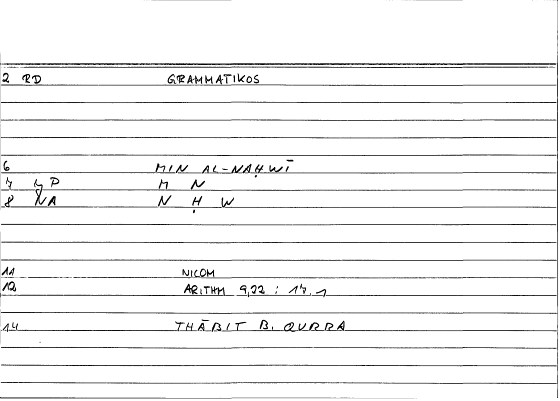 2 RD GRAMMATIKOS
6 MIN AL-NAḤWĪ
7 4P M N
8 NA N Ḥ W
11 NICOM
12 ARITHM 9,22 : 17,1
14 THĀBIT B. QURRA